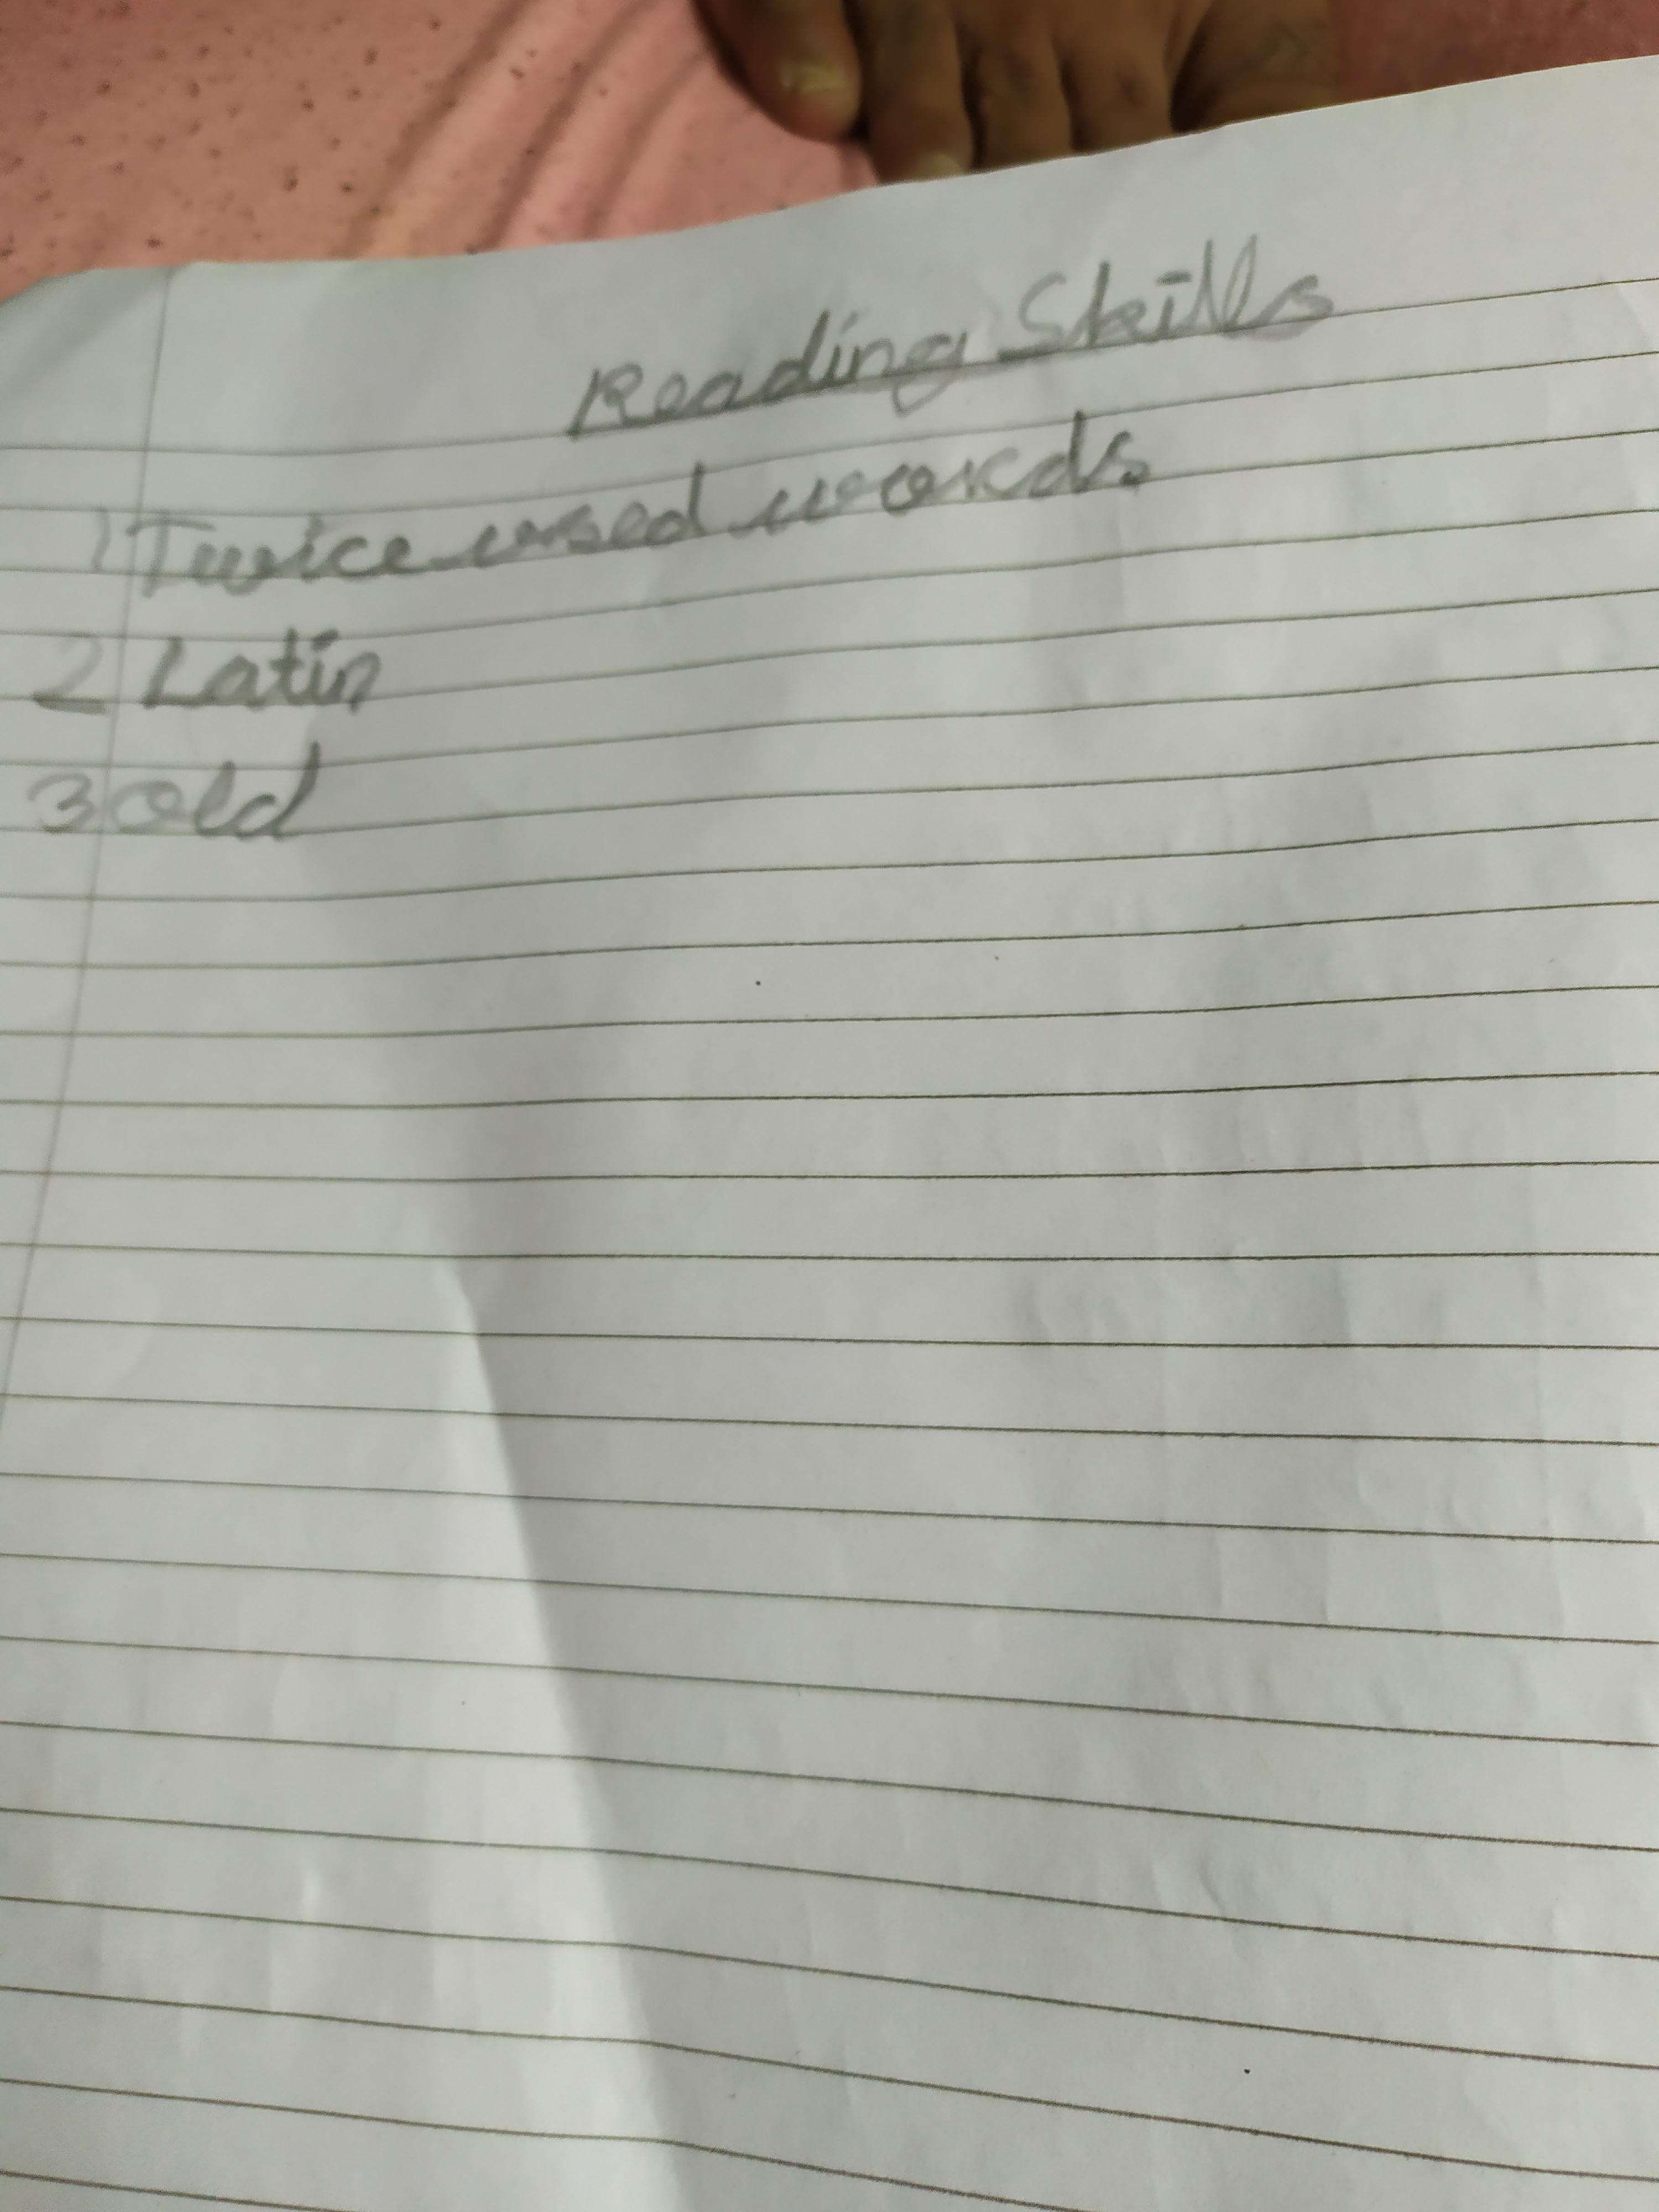 Reading Skills
1 Twice used words
2 Latin
3 old